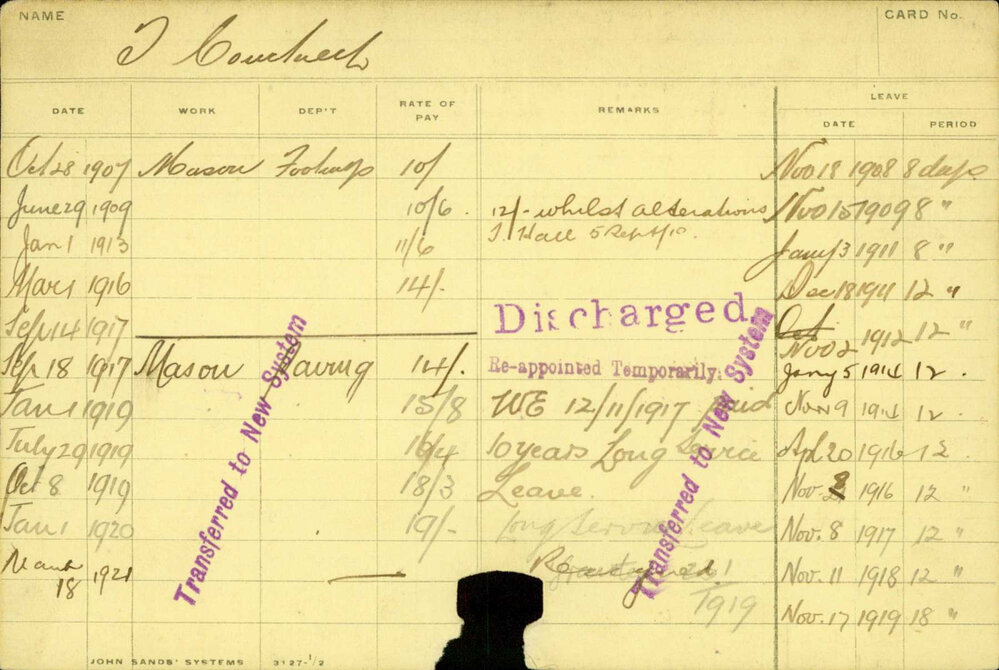 NAME
CARD No.
T
DATE WORK DEP'T RATE OF PAY REMARKS LEAVE
DATE PERIOD
Oct 28 1907 Mason 10/ Nov 18 1908 8 days
June 29 1909 10/6 12/- whilst alterations Nov 15 1909 8 "
Jan 1 1913 11/6 T. Hall 5 Sept/10. Jany 3 1911 8 "
Mar 1 1916 14/- Dec 18 1911 12 "
Sep 14 1917 Discharged Oct Nov 2 1912 12 "
Sep 18 1917 Mason Paving 14/- Re-appointed Temporarily. Jany 5 1914 12 "
Jan 1 1919 15/8 WE 12/11/1917 Paid Nov 9 1914 12
July 29 1919 16/4 10 years Long Service Apl 20 1916 12
Oct 8 1919 18/3 Leave. Nov. 1916 12 "
Jan 1 1920 19/- Long Service Leave Nov. 8 1917 12 "
March 18 1921 Nov. 11 1918 12 "
1919 Nov. 17 1919 18 "
Transferred to New System
Transferred to New System
JOHN SANDS' SYSTEMS 3127-1/2